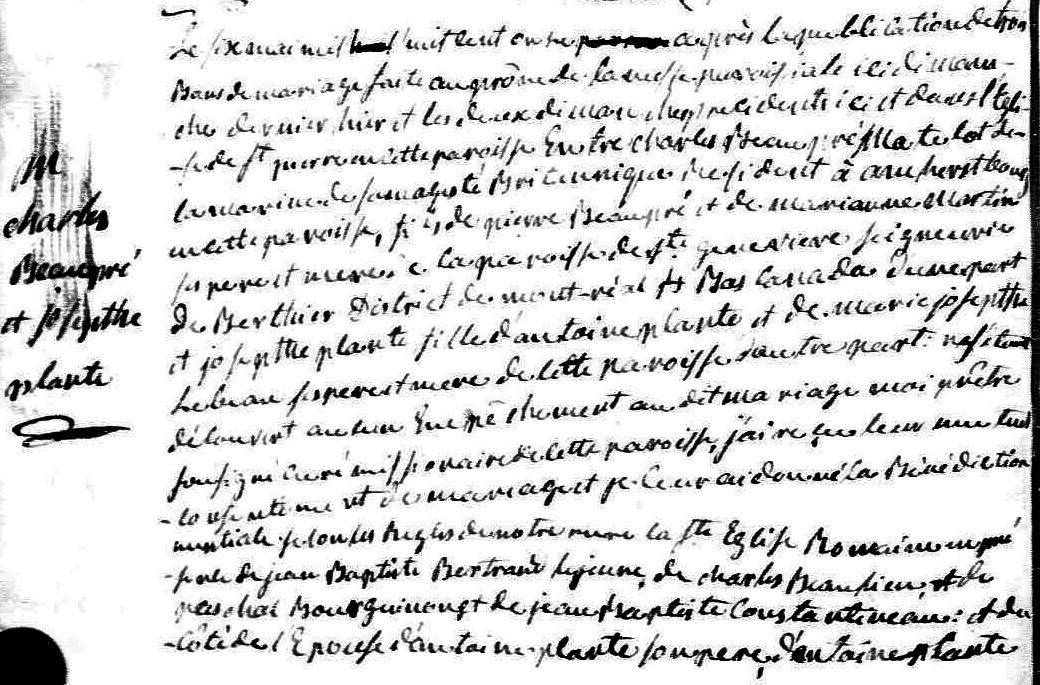 M
charles
Beaupré
et josepthe
plante
Le six mai mil huit cent onze après la publication de trois
Bans de mariage faite au prône de la messe paroissiale ici diman-
che dernier hier et les deux dimanches précédents ici et dans l'Egli-
-se de St pierre en cette paroisse Entre charles Beaupré Matelot de
la marine de sa majesté Britannique résident à amherstbourg
en cette paroisse, fils de pierre Beaupré et de marianne Martin
ses pere et mere de la paroisse de Ste genevieve seigneurie
de Berthier District de mont-réal Bas Canada d'une part
et josepthe plante fille d'antoine plante et de marie josepthe
Lebeau ses pere et mere de cette paroisse d'autre part:
découvert aucun Empêchement au dit mariage moi prêtre
soussigné curé missionaire de cette paroisse, j'ai reçu leur mutuel
-consentement de mariage et je leur ai donné la Bénédiction
nuptiale selon les Regles de notre mere la Ste Eglise Romaine en pré
-sence de jean Baptiste Bertrand lejeune, de charles Beaulieu, et de
paschal Bourguinong et de jean Baptiste Constantineau: et du
-côté de l'Epouse d'antoine plante son pere, d'antoine plante